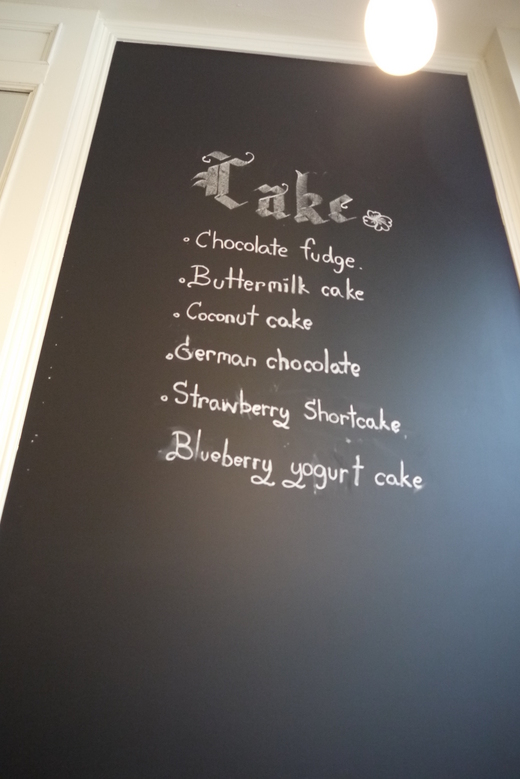 Cake
• Chocolate fudge.
• Buttermilk cake
• Coconut cake
• German chocolate
• Strawberry Shortcake
Blueberry yogurt cake